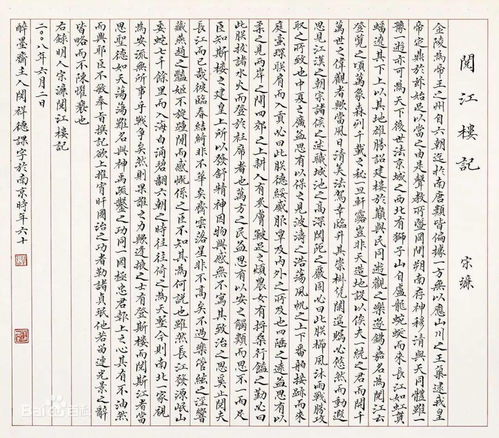 閱江樓記
宋濂
金陵為帝王之州自六朝迄於南唐類皆偏據一方無以應山川之王氣逮我皇
帝定鼎於茲始足以當之由是聲教所暨罔間朔南存神穆清與天同體雖一
豫一遊亦可為天下後世法京城之西北有獅子山自盧龍蜿蜒而來長江如虹貫
蟠遶其下上以其地雄勝詔建樓於巔與民同遊觀之樂遂錫嘉名為閱江云
登覽之頃萬象森列千載之秘一旦軒露豈非天造地設以俟大一統之君而開千
萬世之偉觀者歟當風日清美法駕幸臨升其崇椒憑闌遙矚必悠然而動遐
思見江漢之朝宗諸侯之述職城池之高深關阨之嚴固必曰此朕櫛風沐雨戰勝攻
取之所致也中夏之廣益思有以保之見波濤之浩蕩風帆之上下番舶接跡而來
庭蠻琛聯肩而入貢必曰此朕德綏威服覃及內外之所及也四陲之遠益思有以
柔之見兩岸之間四郊之上耕人有炙膚皸足之煩農女有捋桑行饁之勤必曰
此朕拔諸水火而登於衽席者也萬方之民益思有以安之觸類而思不一而足
臣知斯樓之建皇上所以發舒精神因物興感無不寓其致治之思奚止閱夫
長江而已哉彼臨春結綺非不華矣齊雲落星非不高矣不過樂管絃之淫響
藏燕趙之豔姬不旋踵間而感慨係之臣不知其為何說也雖然長江發源岷山
委蛇七千餘里而入海白湧碧翻六朝之時往往倚之為天塹今則南北一家視
為安流無所事乎戰爭矣然則果誰之力歟逢掖之士有登斯樓而閱斯江者當
思聖德如天蕩蕩難名與神禹疏鑿之功同一罔極忠君報上之心其有不油然
而興耶臣不敏奉旨撰記欲上推宵旰圖治之功者勒諸貞珉他若留連光景之辭
皆略而不陳懼褻也
右錄明人宋濂閱江樓記
二〇〇八年六月二日
醉墨齋主人閆祥德課字於南京時年六十
Baidu百科